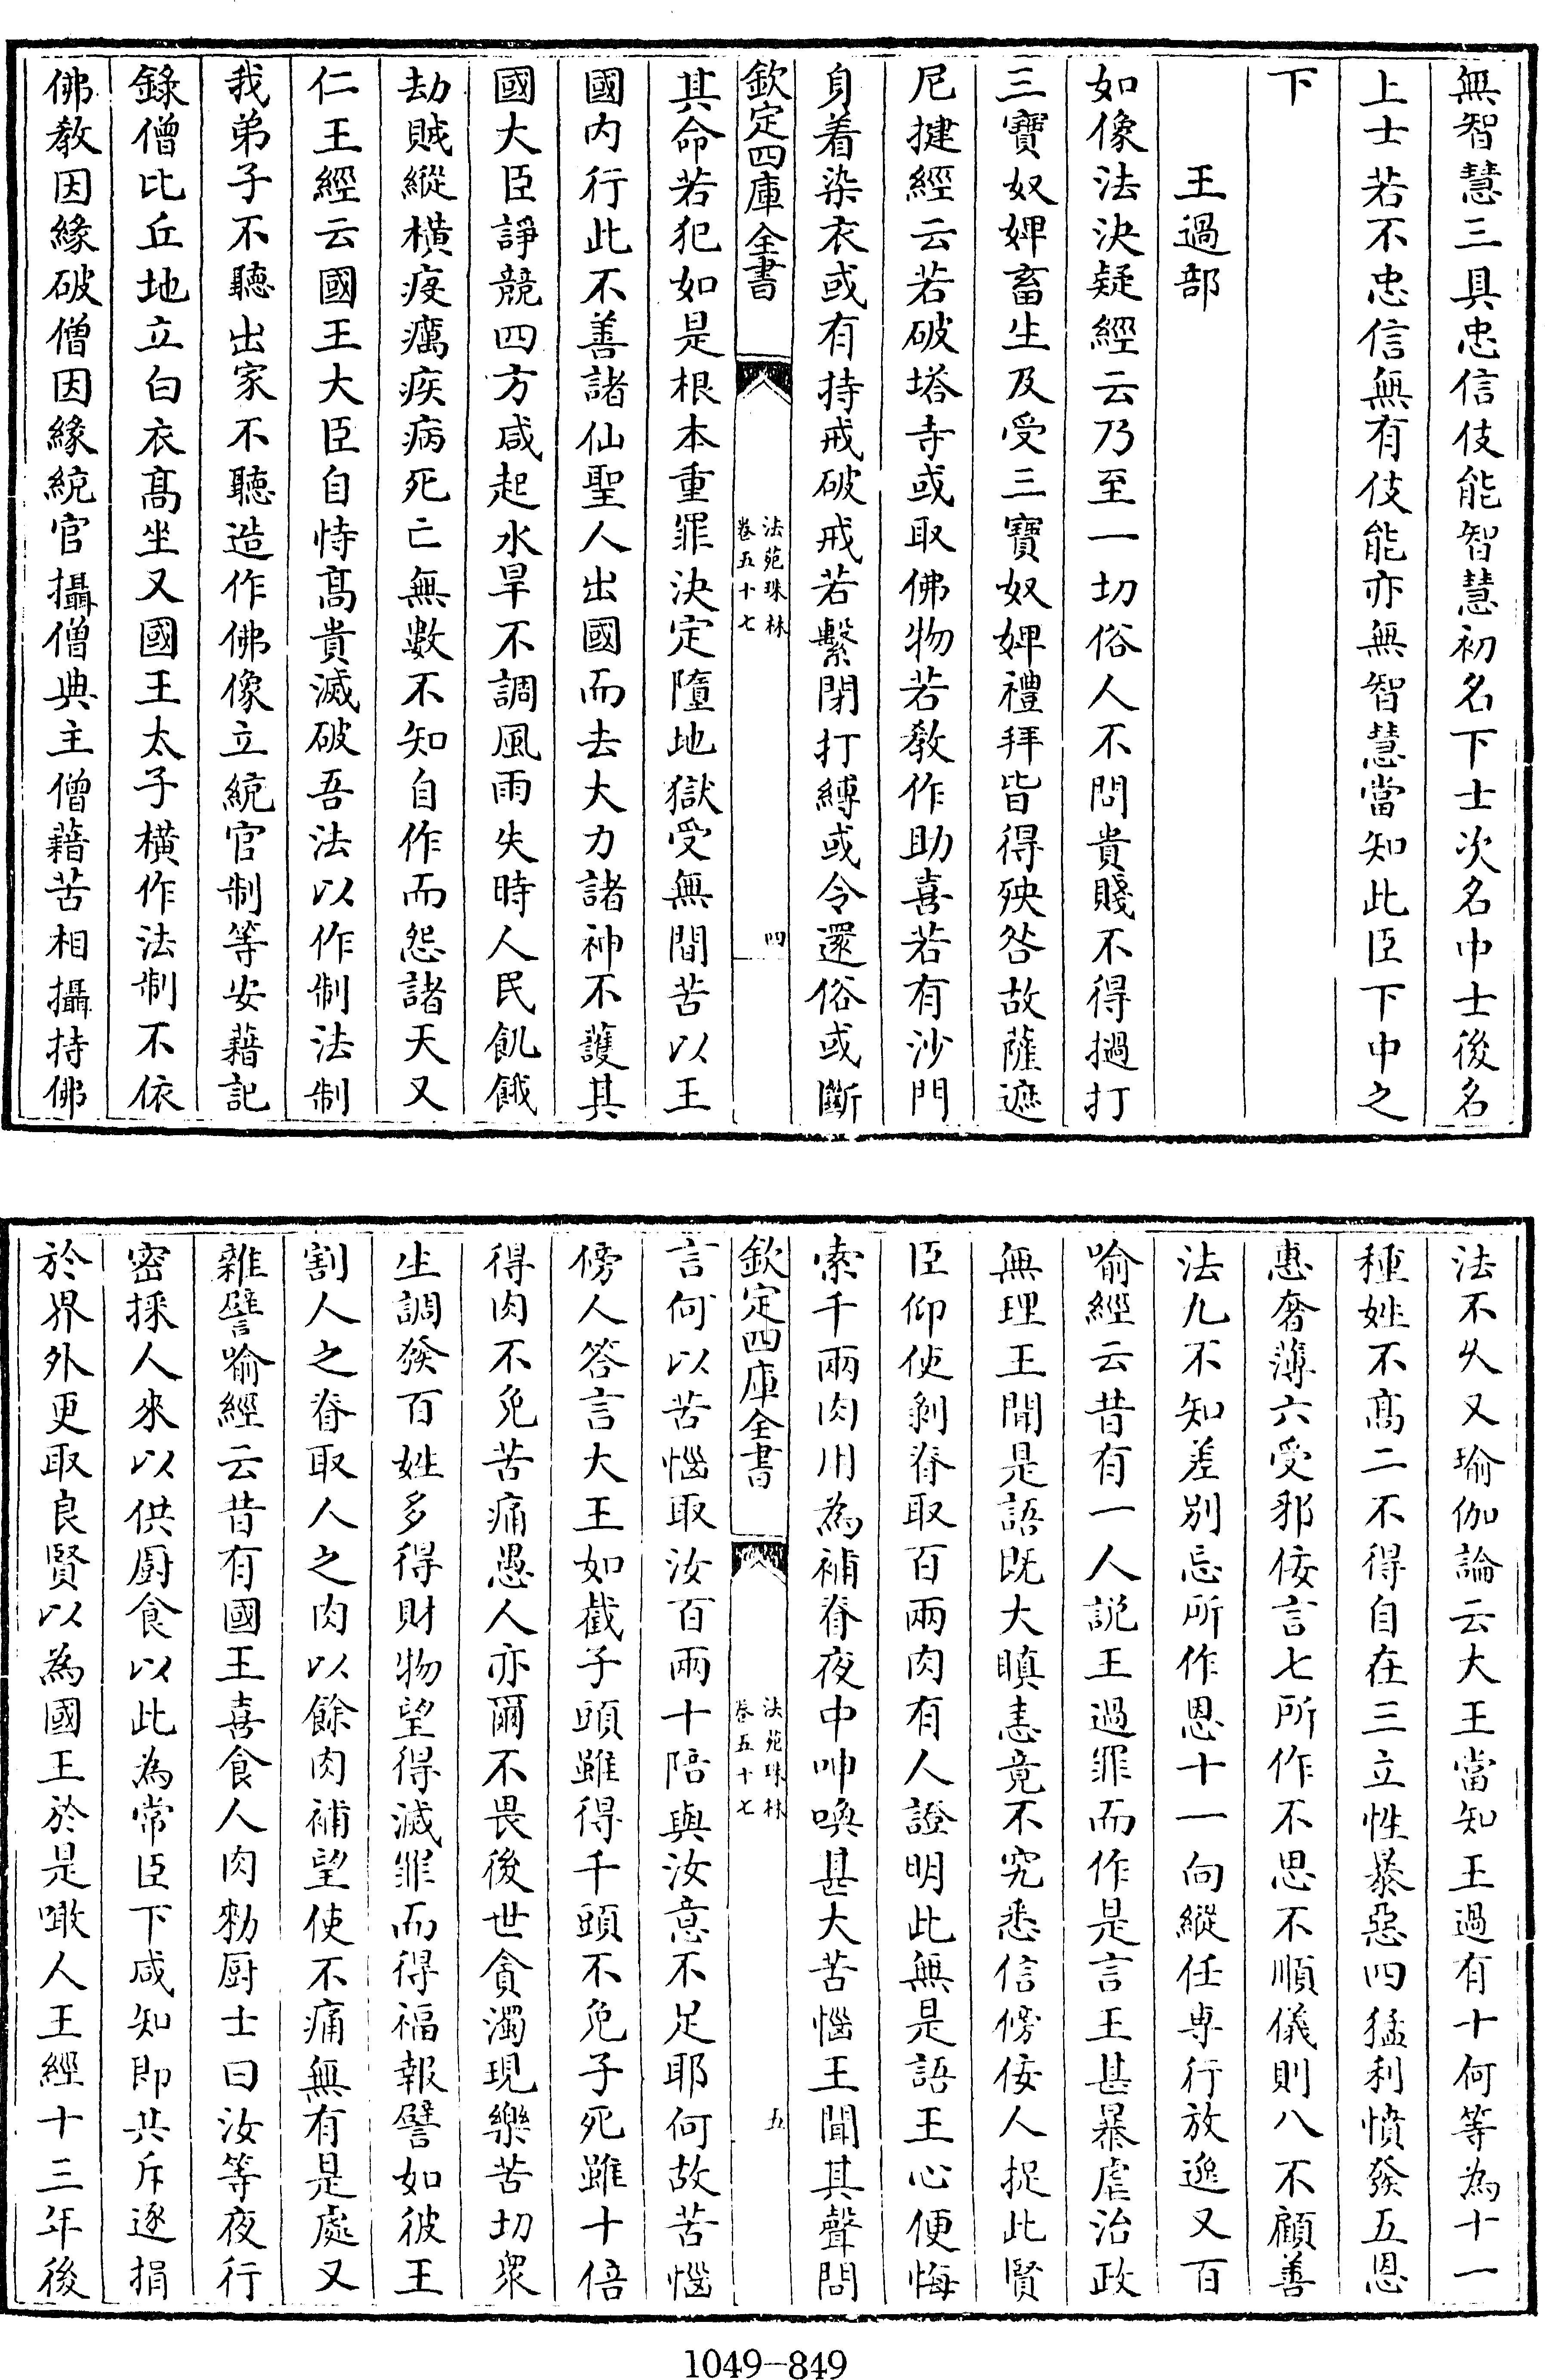 無智慧三具忠信伎能智慧初名下士次名中士後名
上士若不忠信無有伎能亦無智慧當知此臣下中之
下
王過部
如像法決疑經云乃至一切俗人不問貴賤不得撾打
三寶奴婢畜生及受三寶奴婢禮拜皆得殃咎故薩遮
尼揵經云若破塔寺或取佛物若教作助喜若有沙門
身着染衣或有持戒破戒若繫閉打縛或令還俗或斷
欽定四庫全書
法苑珠林
卷五十七
四
其命若犯如是根本重罪決定墮地獄受無間苦以王
國内行此不善諸仙聖人出國而去大力諸神不護其
國大臣諍競四方咸起水旱不調風雨失時人民飢餓
劫賊縱橫疫癘疾病死亡無數不知自作而怨諸天又
仁王經云國王大臣自恃髙貴滅破吾法以作制法制
我弟子不聽出家不聽造作佛像立統官制等安藉記
錄僧比丘地立白衣髙坐又國王太子橫作法制不依
佛教因緣破僧因緣統官攝僧典主僧藉苦相攝持佛
法不乆又瑜伽論云大王當知王過有十何等為十一
種姓不髙二不得自在三立性暴惡四猛利憤發五恩
惠奢薄六受邪佞言七所作不思不順儀則八不顧善
法九不知差別忘所作恩十一向縱任専行放逸又百
喻經云昔有一人說王過罪而作是言王甚暴虐治政
無理王聞是語既大瞋恚竟不究悉信傍佞人捉此賢
臣仰使剝脊取百兩肉有人證明此無是語王心便悔
索千兩肉用為補脊夜中呻喚甚大苦惱王聞其聲問
欽定四庫全書
法苑珠林
卷五十七
五
言何以苦惱取汝百兩十陪與汝意不足耶何故苦惱
傍人答言大王如截子頭雖得千頭不免子死雖十倍
得肉不免苦痛愚人亦爾不畏後世貪濁現樂苦切衆
生調發百姓多得財物望得滅罪而得福報譬如彼王
割人之脊取人之肉以餘肉補望使不痛無有是處又
雜譬喻經云昔有國王喜食人肉勑厨士曰汝等夜行
密採人來以供厨食以此為常臣下咸知即共斥逐捐
於界外更取良賢以為國王於是噉人王經十三年後
1049-849